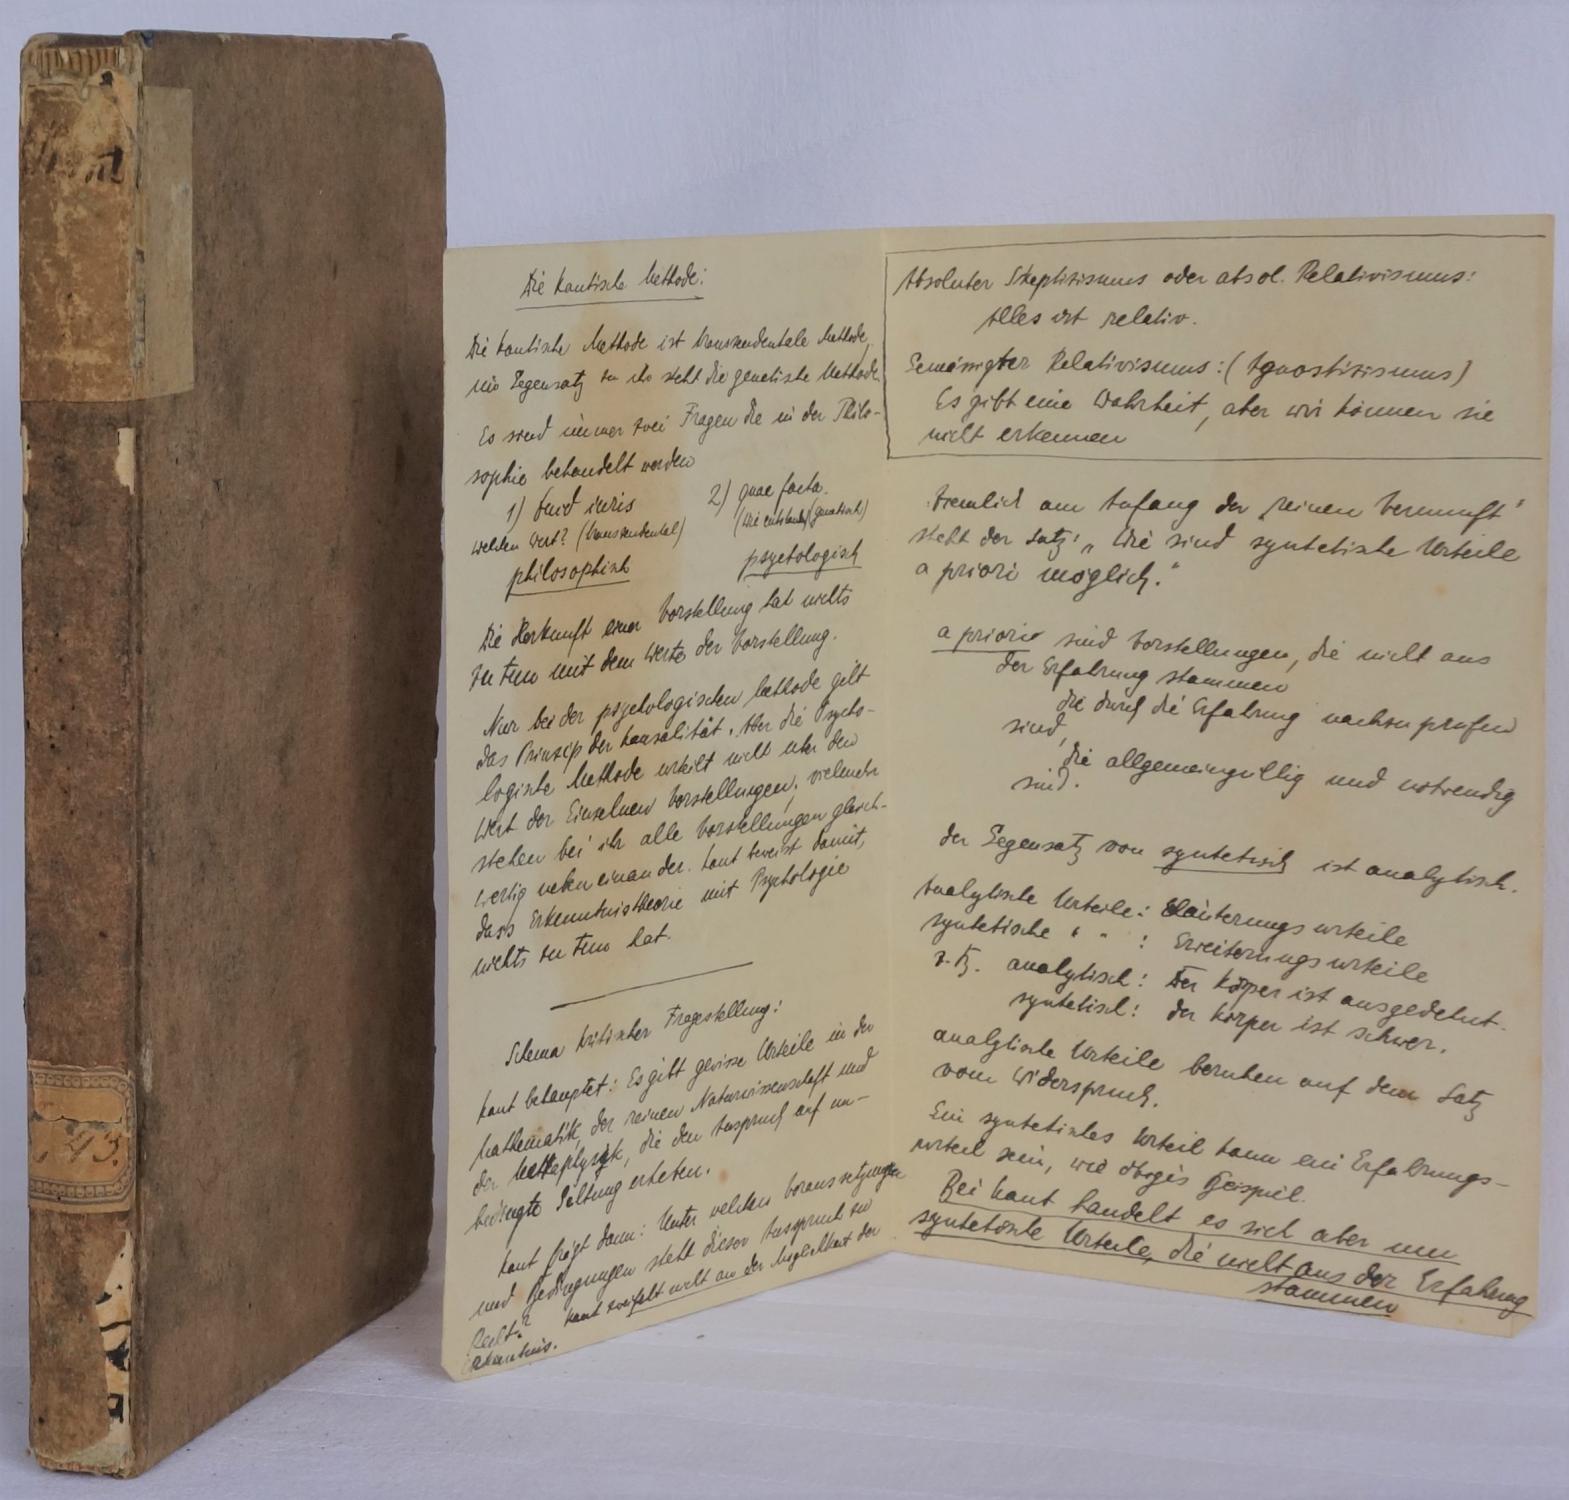 Kant
43.
Die kantische Methode:
Die kantische Methode ist transzendentale Methode,
im Gegensatz zu ihr steht die genetische Methode.
Es sind immer zwei Fragen die in der Philo-
sophie behandelt werden
1) iuris
2) quae facta.
welchen Wert? (transzendental)
(Wie entstanden (genetisch)
philosophisch
psychologisch
Die Herkunft einer Vorstellung hat nichts
zu tun mit dem Werte der Vorstellung.
Nur bei der psychologischen Methode gilt
das Prinzip der Kausalität. Aber die Psycho-
logische Methode urteilt nicht über den
Wert der Einzelnen Vorstellungen, vielmehr
stehen bei ihr alle Vorstellungen gleich-
wertig nebeneinander. Kant beweist damit,
dass Erkenntnistheorie mit Psychologie
nichts zu tun hat.
Schema kritischer Fragestellung:
Kant behauptet: Es gibt gewisse Urteile in der
Mathematik, der reinen Naturwissenschaft und
der Metaphysik, die den Anspruch auf un-
bedingte Geltung erheben.
Kant frägt dann: Unter welchen Voraussetzungen
und Bedingungen steht dieser Anspruch zu
Recht? Kant zweifelt nicht an der Möglichkeit der
Erkenntnis.
Absoluter Skeptizismus oder absol. Relativismus:
Alles ist relativ.
Gemässigter Relativismus: (Agnostizismus)
Es gibt eine Wahrheit, aber wir können sie
nicht erkennen
Ziemlich am Anfang der „reinen Vernunft"
steht der Satz: „Wie sind syntetische Urteile
a priori möglich."
a priori sind Vorstellungen, die nicht aus
der Erfahrung stammen
die durch die Erfahrung nachzuprüfen
sind,
die allgemeingültig und notwendig
sind.
der Gegensatz von syntetisch ist analytisch.
Analytische Urteile: Erläuterungsurteile
syntetische " " : Erweiterungsurteile
z.B. analytisch: Der Körper ist ausgedehnt.
syntetisch: der Körper ist schwer.
analytische Urteile beruhen auf dem Satz
vom Widerspruch.
Ein syntetisches Urteil kann ein Erfahrungs-
urteil sein, wie obiges Beispiel.
Bei Kant handelt es sich aber um
syntetische Urteile, die nicht aus der Erfahrung
stammen